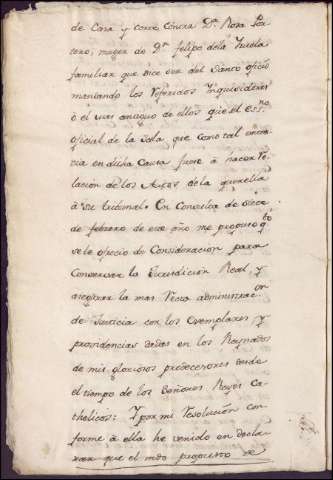 de Casa y corre contra D.ª Rosa
muger de D.n felipe de la Huerta
familiar que dice ser del Santo oficio
mandando los referidos Inquisidores
ò el mas antiguo de ellos que el ess.no
oficial de la Sala, que como tal
en dicha Causa fuese à hacer re-
lacion de los Autos de la querella
à su tribunal. En Consulta de
de febrero de ese año me propuso
se le ofrecio de Consideracion para
Conservar la Jurisdicion Real, y
asegurar la mas recta administrac.on
de Justicia con los exemplares y
providencias dadas en los Reynados
de mis gloriosos predecesores desde
el tiempo de los Señores Reyes Ca-
tholicos: Y por mi resolucion con-
forme à ella he venido en decla-
rar que el medo propuesto